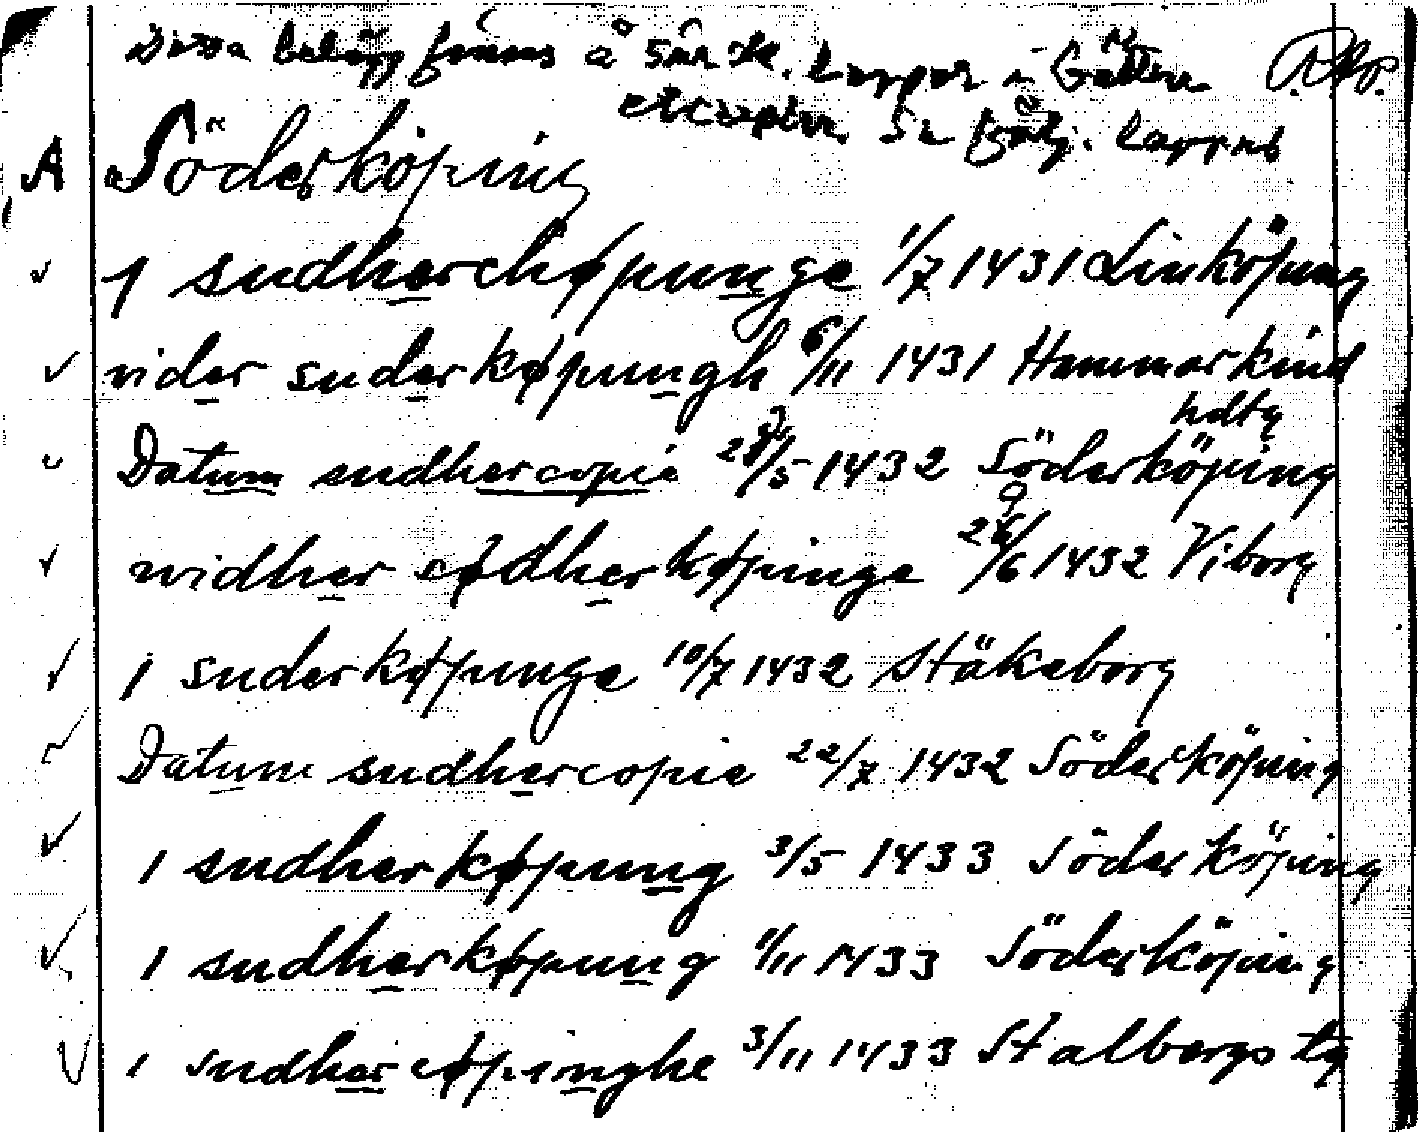 Dessa belägg finns å särsk. lappar i Götlin
excerpter. Se följ. lappar
A Söderköping
I sudherchøpunge 1/7 1431 Linköping
vider suderkøpungh 6/11 1431 Hammarkind
hdtg
Datum sudhercopie 28/5 1432 Söderköping
widher sødherkøpinge 26/6 1432 Viborg
I suderkøpunge 10/7 1432 Stäkeborg
Datum sudhercopie 22/7 1432 Söderköping
I sudherkøpung 3/5 1433 Söderköping
I sudherkøpung 1/11 1433 Söderköping
I sudhercøpinghe 3/11 1433 Stalbergs tg